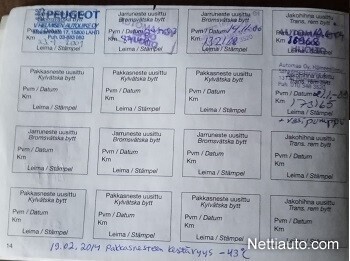 PEUGEOT
15800 LAHTI
Km
Leima / Stämpel
Jarruneste uusittu
Bromsvätska bytt
Pvm / Datum
Km
Leima / Stämpel
Jarruneste uusittu
Bromsvätska bytt
Pvm / Datum
Km
Leima / Stämpel
Jakohihna uusittu
Trans. rem bytt
Leima / Stämpel
Pakkasneste uusittu
Kylvätska bytt
Pvm / Datum
Km
Leima / Stämpel
Pakkasneste uusittu
Kylvätska bytt
Pvm / Datum
Km
Leima / Stämpel
Jarruneste uusittu
Bromsvätska bytt
Pvm / Datum
Km
Leima / Stämpel
Pvm / Datum
Km
Leima / Stämpel
Jarruneste uusittu
Bromsvätska bytt
Pvm / Datum
Km
Leima / Stämpel
Jarruneste uusittu
Bromsvätska bytt
Pvm / Datum
Km
Leima / Stämpel
Jarruneste uusittu
Bromsvätska bytt
Pvm / Datum
Km
Leima / Stämpel
Jakohihna uusittu
Trans. rem bytt
Pvm / Datum
Km
Leima / Stämpel
Pakkasneste uusittu
Kylvätska bytt
Pvm / Datum
Km
Leima / Stämpel
Pakkasneste uusittu
Kylvätska bytt
Pvm / Datum
Km
Leima / Stämpel
Pakkasneste uusittu
Kylvätska bytt
Pvm / Datum
Km
Leima / Stämpel
Jakohihna uusittu
Trans. rem bytt
Pvm / Datum
Km
Leima / Stämpel
14
19.02.2014 Pakkasnesteen kestävyys -43°C
Nettiauto.com